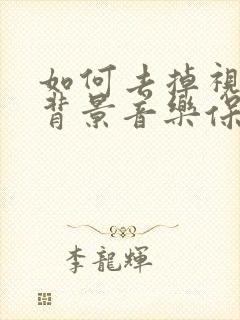 如何去掉視
背景音樂保
李龍輝